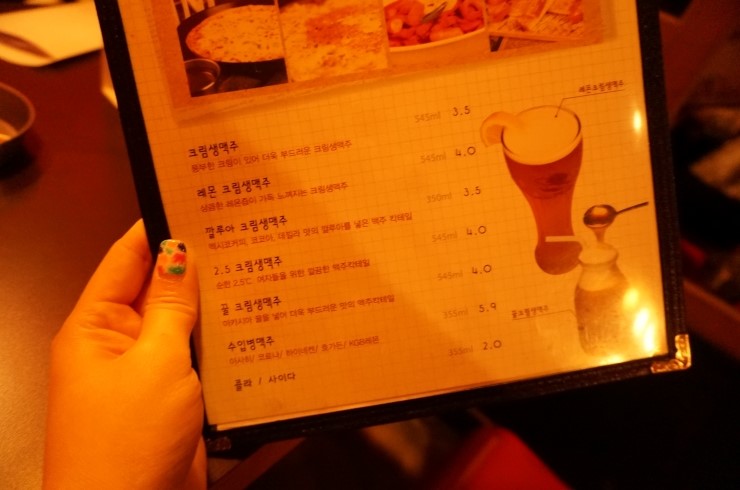 레몬크림생맥주
크림생맥주 545ml 3.5
풍부한 크림이 있어 더욱 부드러운 크림생맥주
레몬 크림생맥주 545ml 4.0
상큼한 레몬즙이 가득 느껴지는 크림생맥주
깔루아 크림생맥주 350ml 3.5
멕시코커피, 코코아, 데킬라 맛의 깔루아를 넣은 맥주 칵테일
2.5 크림생맥주 545ml 4.0
순한 2.5℃, 여자들을 위한 깔끔한 맥주칵테일
꿀 크림생맥주 545ml 4.0
아카시아 꿀을 넣어 더욱 부드러운 맛의 맥주칵테일
꿀크림생맥주
수입병맥주 355ml 5.9
아사히/ 코로나/ 하이네켄/ 호가든/ KGB레몬
콜라 / 사이다 355ml 2.0